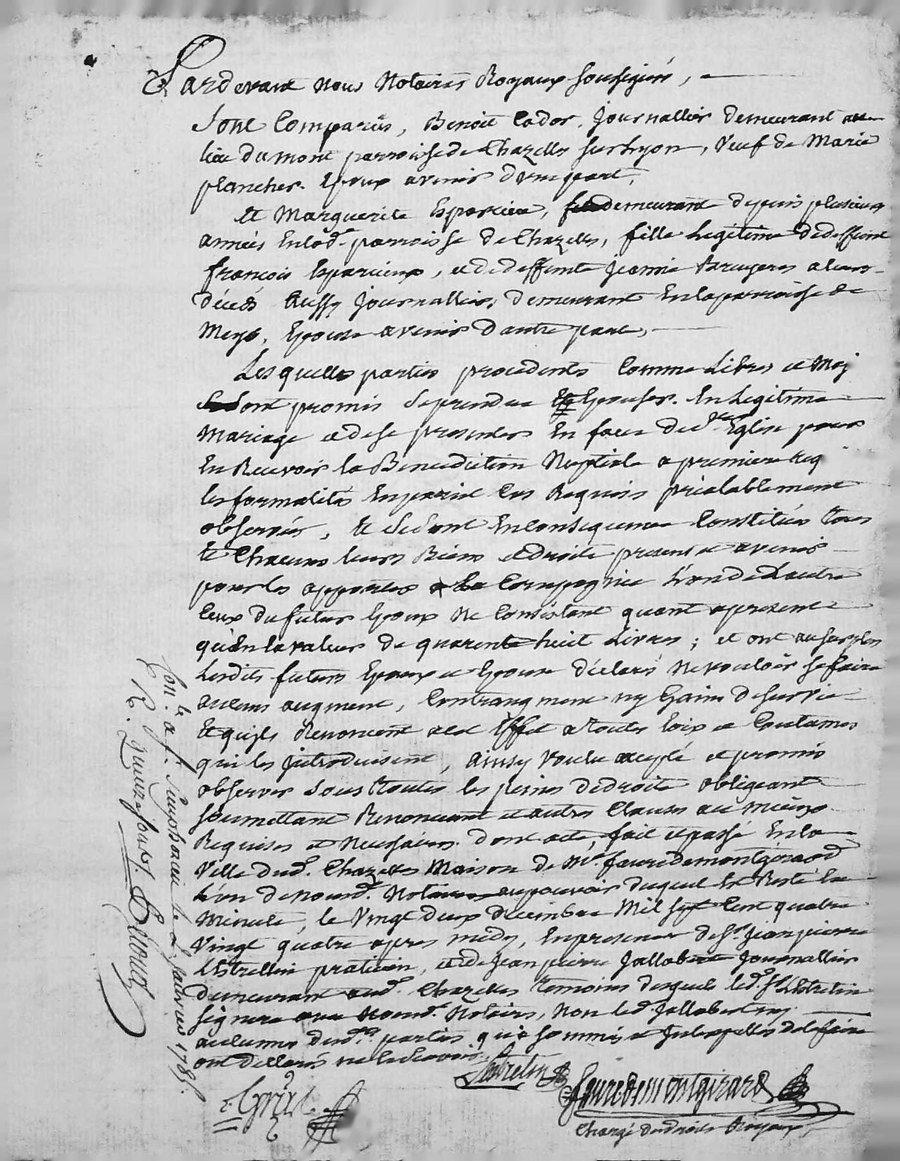 Pardevant nous Notaires Royaux soussignés,
Sont Comparus, Benoit Cador, Journallier demeurant au
lieu du mont parroisse de Chazelles sur Lyon, Veuf de Marie
plancher. Epoux avenir d'une part,
Et Marguerite Esparcieu, demeurant depuis plusieurs
années en lad. parroisse de Chazelles, fille Legitime de deffunt
françois Esparcieux, et de deffunte Jeanne Bruyeres a leurs
décès Aussy Journalliers, demeurant En la parroisse de
Meys, Epouse avenir d'autre part,
Lesquelles parties procedents Comme Libres et Maj
Se sont promis de prendre Epouser. En Legitime
Mariage et de se presenter En face de Ste. Eglise pour
En Recevoir la Benediction Nuptiale a premiere Req
les formalités En pareil Cas Requis préalablement
observées, Et Se sont En consequence Constitués tous
Et Chacuns leurs Biens et droits present et avenir
pour les apporter a la Compagnie L'un de L'autre
Ceux du futur Epoux ne Consistant quant apresent
qu'en la valeur de quarente huit Livres; et ont au surplus
Lesdits futurs Epoux et Epouse déclaré Ne vouloir se faire
aucuns augment, Contraugment ny Gains de survie
Et qu'ils Renoncent a cet Effet a toutes Loix et Coutumes
qui les Introduisent, ainsy voulu accepté et promis
observer Sous toutes les peines de droits obligeant
soumettant Renoncant et autres Clauses au mieux
Requises et Necessaires. dont acte, fait et passé En la
Ville dud. Chazelles Maison de Me. faure de montgirard
L'un de nousd. Notaires au pouvoir duquel Est Resté la
Minute, le Vingt deux decembre Mil sept Cent quatre
Vingt quatre apres midy, En presence de Sr. Jean pierre
Lestrelin praticien, et de Jean pierre Jallabert Journallier
demeurant aud. Chazelles temoins desquels led. Sr. Lestrelin
signera avec Nousd. Notaires, Non led. Jallabert ny
aucunes desd. parties qui de ce sommés et Interpellés de le faire
ont declaré ne le scavoir.
Lestrelin
faure de montgirard
Chargé des droits Royaux
Con. le a S. Simphorien le 2 Janvier 1785.
R. quinze sous.